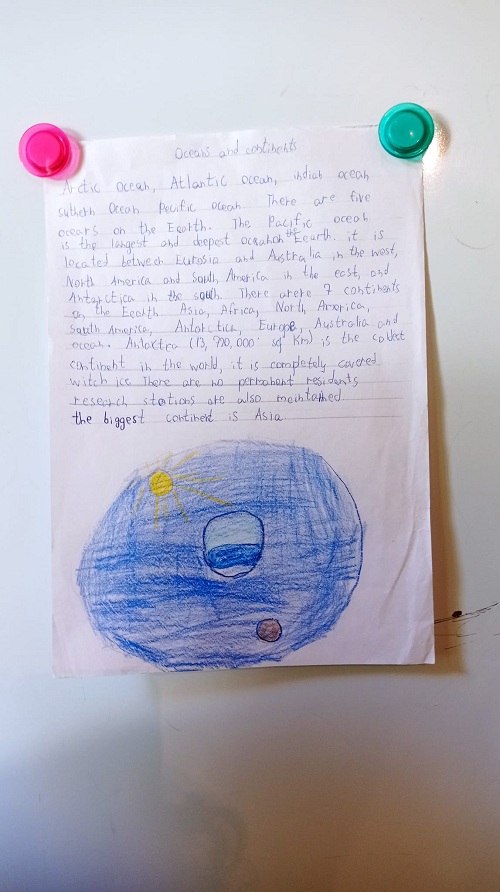 Oceans and continents
Arctic ocean, Atlantic ocean, indian ocean
suthern Ocean Pecific ocean There are five
ocears on the Eearth. The Pacific ocean
is the longest and deepest oceanon the Eearth. it is
located between Eurosia and Australia in the west,
North America and South America in the east, and
Antarctica in the south. There arere 7 continents
on the Eearth Asia, Africa, North America,
South America, Antarctica, Europe, Australia and
ocean. Antactra (13,700,000 sq Km) is the coldest
continent in the world, it is completely covered
witch ice There are no permanent residents
research stations are also maintained
the biggest continent is Asia